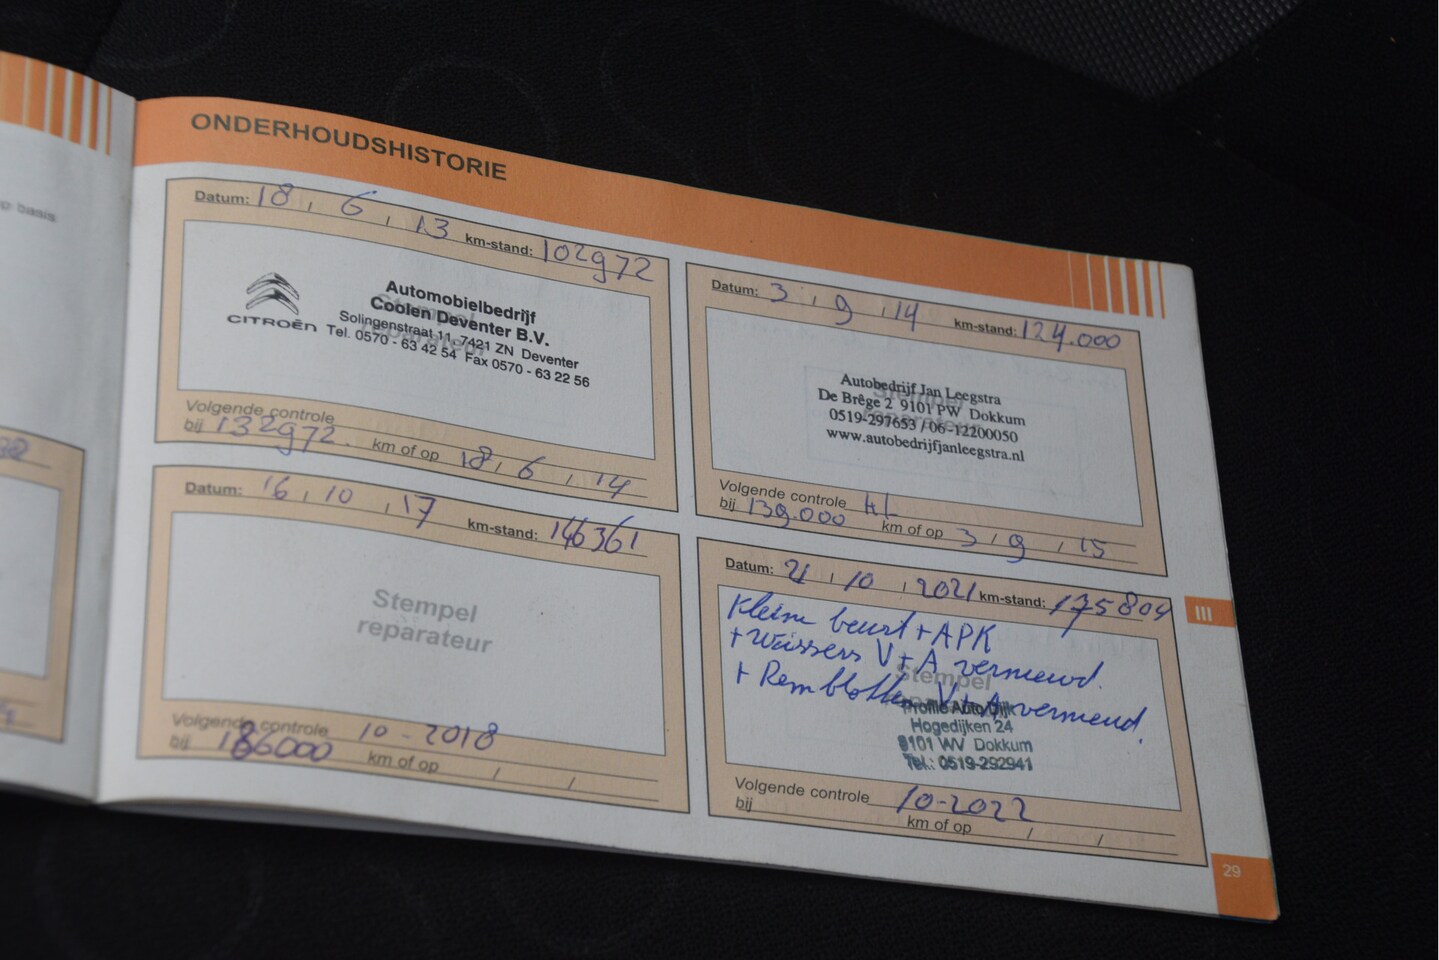 p basis
ONDERHOUDSHISTORIE
Datum: 18, 6, 13 km-stand: 102972
CITROËN
Automobielbedrijf
Coolen Deventer B.V.
Solingenstraat 11, 7421 ZN Deventer
Tel. 0570 - 63 42 54 Fax 0570 - 63 22 56
Volgende controle
bij 132972. km of op 18, 6, 14
Datum: 3, 9, 14 km-stand: 124.000
Autobedrijf Jan Leegstra
De Brêge 2 9101 PW Dokkum
0519-297653 / 06-12200050
www.autobedrijfjanleegstra.nl
Volgende controle
bij 139.000 km of op 3, 9, 15
Datum: 16, 10, 17 km-stand: 146361
Stempel
reparateur
Volgende controle 10-2018
bij km of op / /
Datum: 21, 10, 2021 km-stand: 175804
Kleine beurt + APK
+ Wissers V+A vernieuwd.
+ Remblokken V+A vernieuwd.
Stempel
Profile Auto Dijk
Hogedijken 24
9101 WV Dokkum
Tel.: 0519-292941
Volgende controle 10-2022
bij km of op / /
III
29